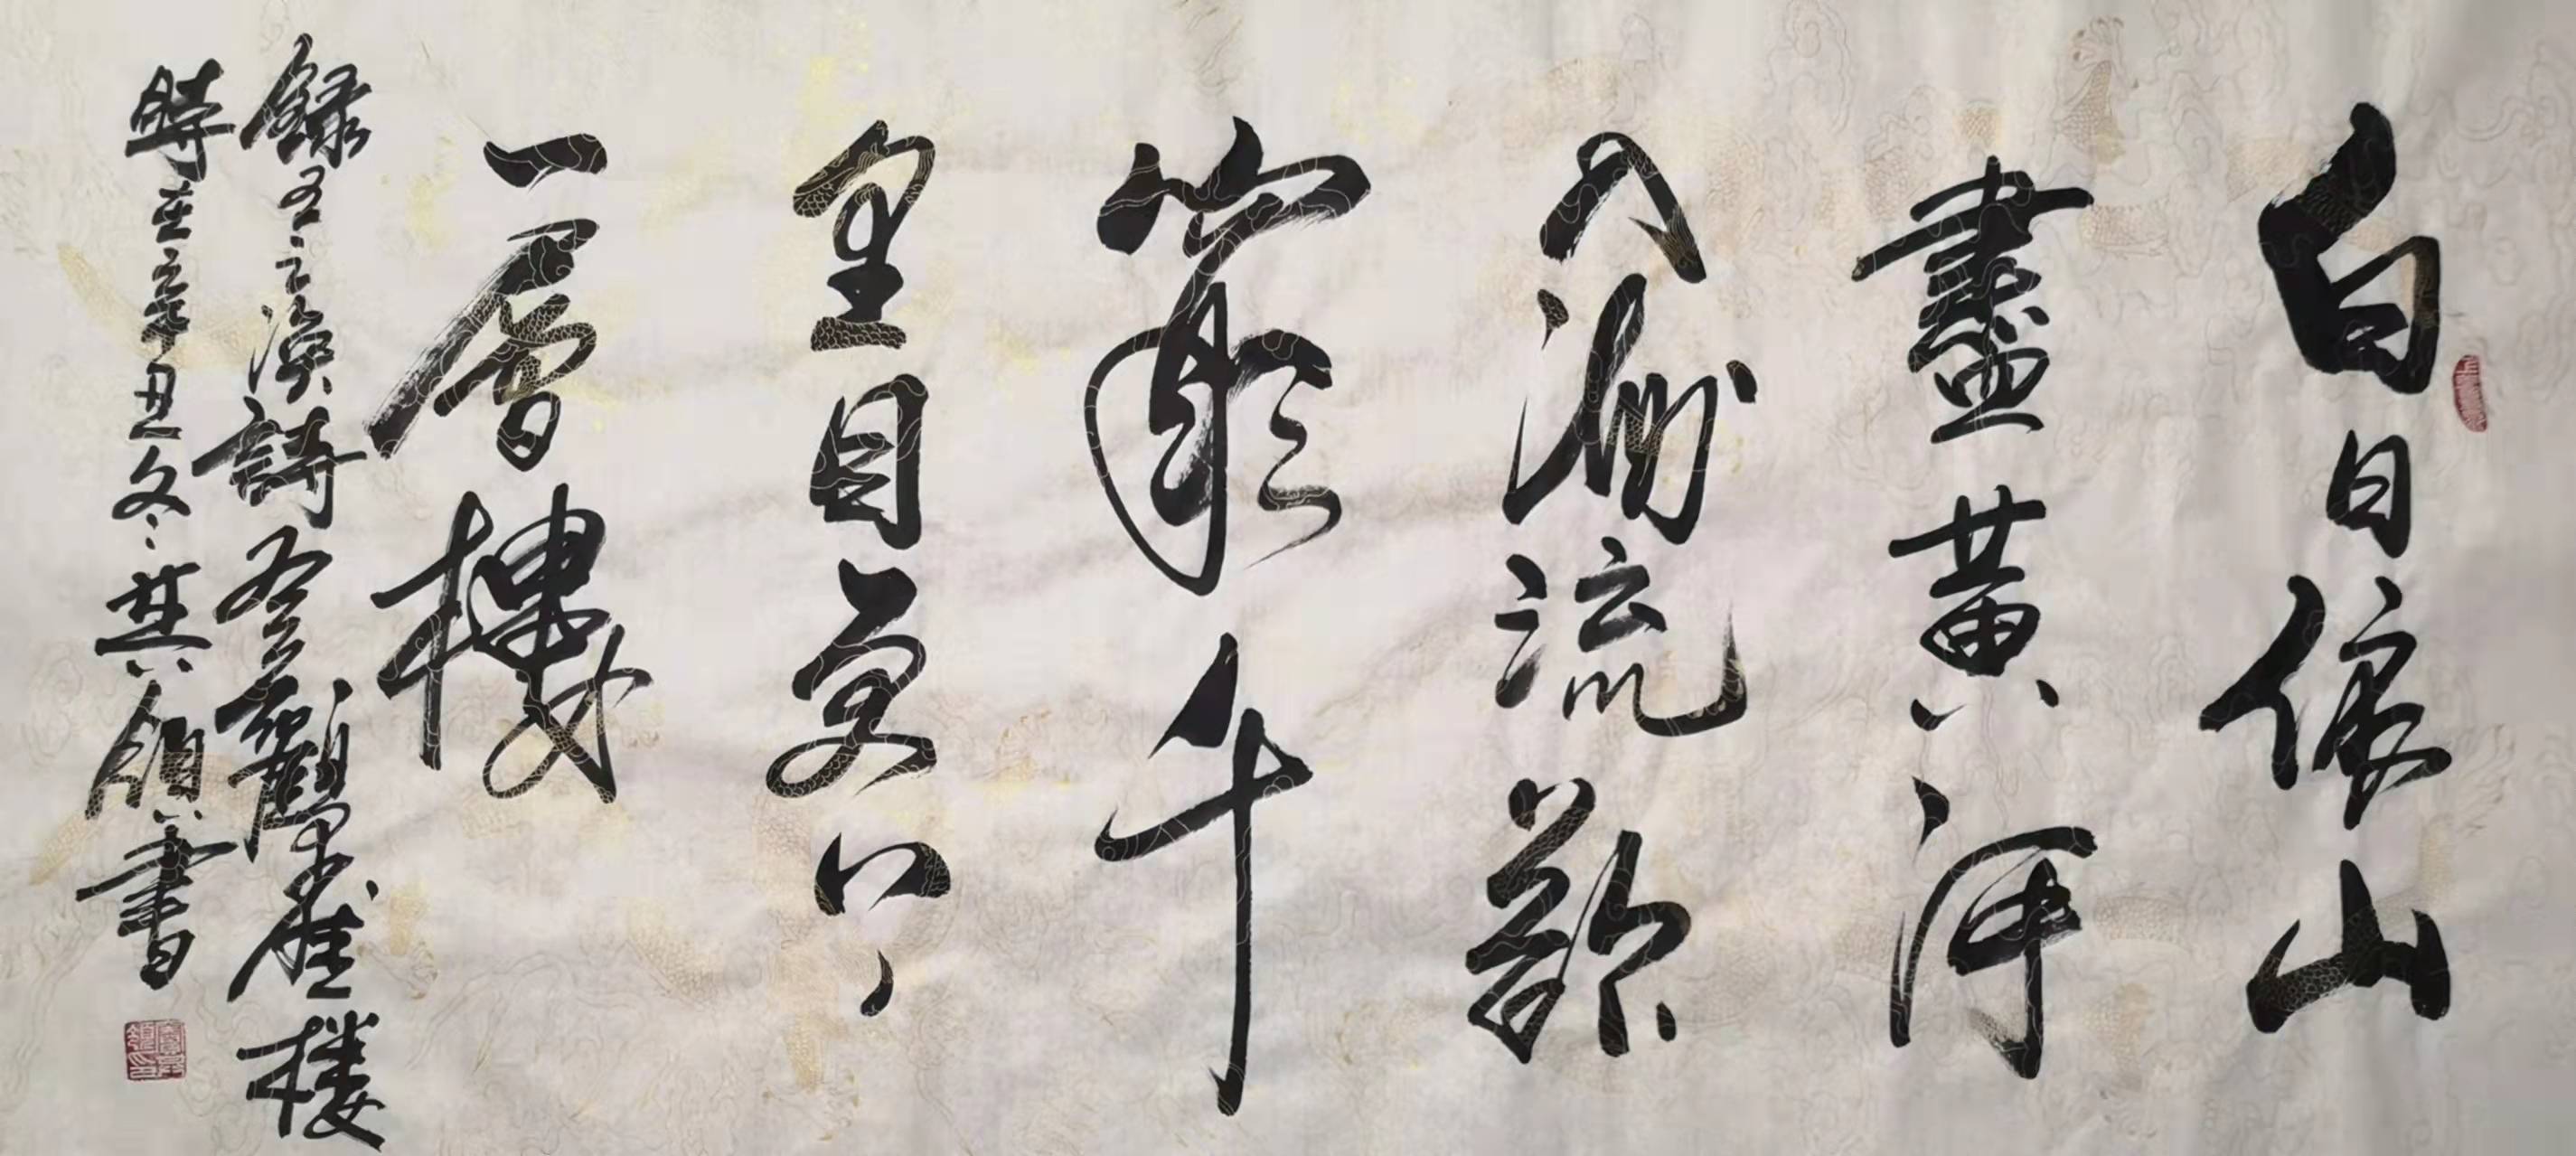 白日依山
盡黄河
入海流欲
窮千
里目更上
一層樓
録王之渙詩登鸛雀楼
時在辛丑冬領書